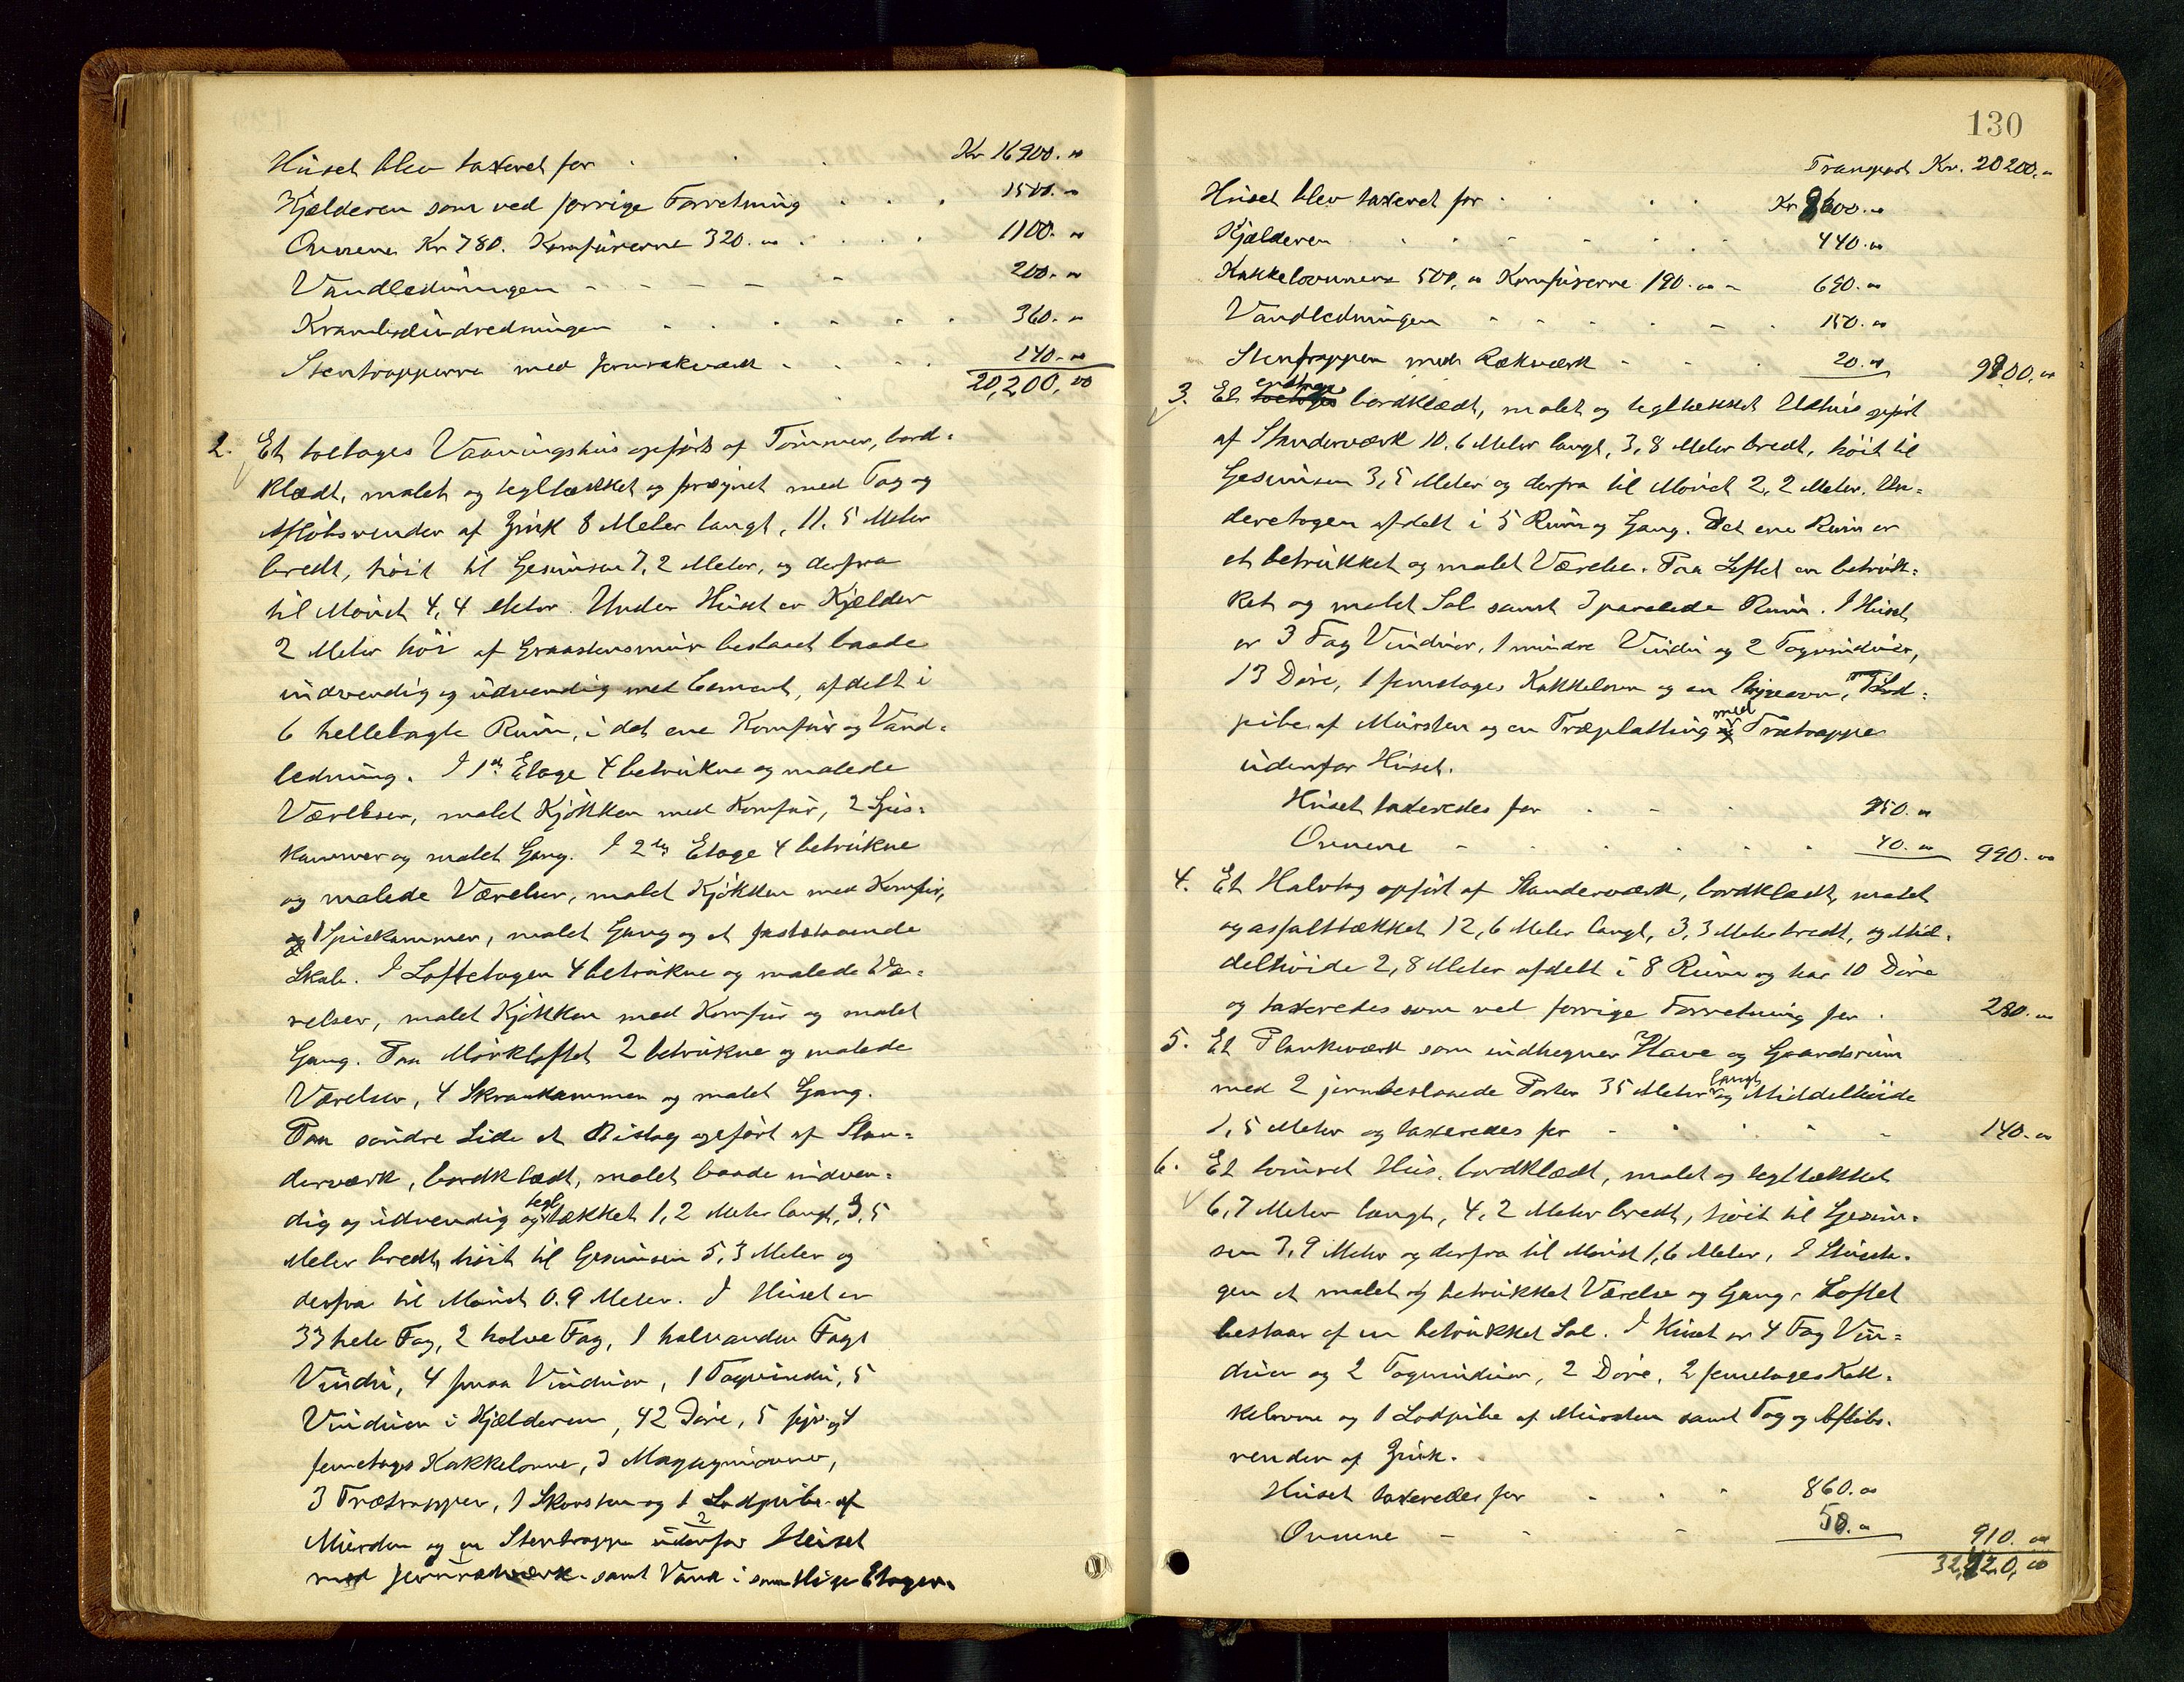 Huset blev taxeret for . . . Kr 16900.00
Kjælderen som ved forrige Forretning . . . 1500.00
Ovnene Kr 780. Komfurerne 320.00 . . . 1100.00
Vandledningen - - - - - 200.00
Krambodindredningen . . . . . 360.00
Stentrapperne med Jernrækværk . . . 140.00
20,200.00
2. Et toetages Vaaningshus opført af Tømmer, bord=
klædt, malet og tegltækket og forsynet med Tag og
Afløbsrender af Zink 8 Meter langt, 11.5 Meter
bredt, høit til Gesimsen 7,2 Meter, og derfra
til Mønet 4,4 Meter. Under Huset er Kjælder
2 Meter høi af Graastensmur beslaaet baade
indvendig og udvendig med Cement, afdelt i
6 hellelagte Rum, i det ene Komfur og Vand=
ledning. I 1ste Etage 4 betrukne og malede
Værelser, malet Kjøkken med Komfur, 2 Spis=
kammer og malet Gang. I 2den Etage 4 betrukne
og malede Værelser, malet Kjøkken med Komfur,
1 Spiskammer, malet Gang og et faststaaende
Skab. I Loftetagen 4 betrukne og malede Væ=
relser, malet Kjøkken med Komfur og malet
Gang. Paa Mørkloftet 2 betrukne og malede
Værelser, 4 Skraakammer og malet Gang.
Paa søndre Side et Bislag opført af Stan=
derværk, bordklædt, malet baade indven=
dig og udvendig og tegltækket 1,2 Meter langt, 3,5
Meter bredt, høit til Gesimsen 5,3 Meter og
derfra til Mønet 0.9 Meter. I Huset er
33 hele Fag, 2 halve Fag, 1 halvanden Fags
Vindu, 4 smaa Vinduer, 1 Tagvindu, 5
Vinduer i Kjælderen, 42 Døre, 5 fire og 4
femetages Kakkelovne, 3 Magasinovne,
3 Trætrapper, 1 Skorsten og 1 Lodpibe af
Mursten og en Stentrappe 2 udenfor Huset
med Jernrækværk samt Vand i samtlige Etager.
130
Transport Kr. 20200.00
Huset blev taxeret for . . . Kr 8600.00
Kjælderen . . . . . 440.00
Kakkelovnene 500,00 Komfurerne 190.00 - 690.00
Vandledningen - - - - - 150.00
Stentrappen med Rækværk - - - 20.00 9900.00
3. Et enetages bordklædt, malet og tegltækket Udhus opført
af Standerværk 10.6 Meter langt, 3,8 Meter bredt, høit til
Gesimsen 3,5 Meter og derfra til Mønet 2,2 Meter. Un=
deretagen afdelt i 5 Rum og Gang. Det ene Rum er
et betrukket og malet Værelse. Paa Loftet en betruk=
ket og malet Sal samt 3 panelede Rum. I Huset
er 3 Fag Vinduer, 1 mindre Vindu og 2 Tagvinduer,
13 Døre, 1 femetages Kakkelovn og en Strygeovn, Lod=
pibe af Mursten og en Træplatting med Trætrappe
udenfor Huset.
Huset taxeredes for . - - 950.00
Ovnene - . . . . 40.00 990.00
4. Et Halvtag opført af Standerværk, bordklædt, malet
og asfalttækket 12,6 Meter langt, 3,3 Meter bredt, og Mid=
delhøide 2,8 Meter afdelt i 8 Rum og har 10 Døre
og taxeredes som ved forrige Forretning for . 280.00
5. Et Plankeværk som indhegner Have og Gaardsrum
med 2 jernbeslaaede Porter 35 Meter langt og Middelhøide
1,5 Meter og taxeredes for - - - - 140.00
6. Et tømret Hus, bordklædt, malet og tegltækket
6,7 Meter langt, 4,2 Meter bredt, høit til Gesim=
sen 3,9 Meter og derfra til Mønet 1,6 Meter. I Stueeta=
gen et malet og betrukket Værelse og Gang. Loftet
bestaar af en betrukket Sal. I Huset er 4 Fag Vin=
duer og 2 Tagvinduer, 2 Døre, 2 femetages Kak=
kelovne og 1 Lodpibe af Mursten samt Tag og Afløbs=
render af Zink.
Huset taxeredes for - - - 860.00
Ovnene - - - - 50.00 910.00
32,420,00